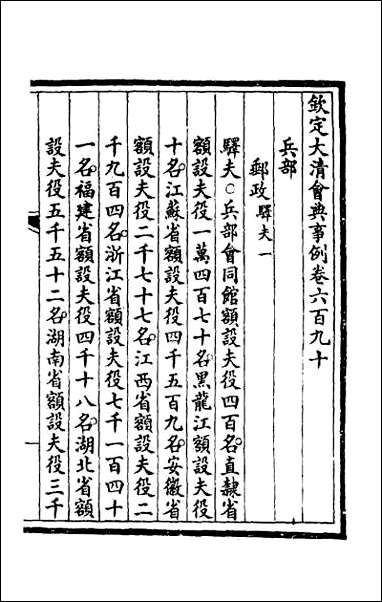 欽定大清會典事例卷六百九十
兵部
郵政驛夫一
驛夫○兵部會同館額設夫役四百名直隸省
額設夫役一萬四百七十名黑龍江額設夫役
十名江蘇省額設夫役四千五百九名安徽省
額設夫役二千七十七名江西省額設夫役二
千九百四名浙江省額設夫役七千一百四十
一名福建省額設夫役四千十八名湖北省額
設夫役五千五十二名湖南省額設夫役三千